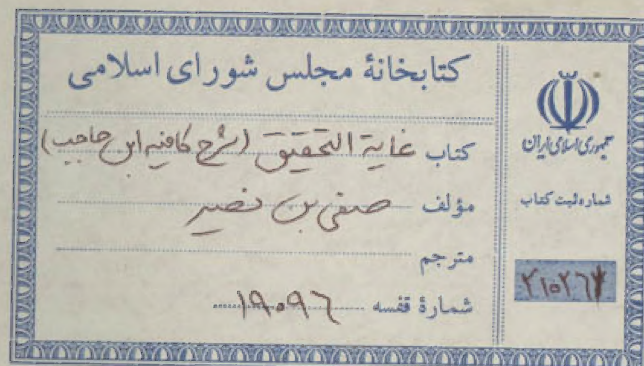 کتابخانهٔ مجلس شورای اسلامی
کتاب غایة التحقیق (شرح کافیه ابن حاجب)
مؤلف صفی بن نصیر
مترجم
شمارهٔ قفسه ۱۹۰۹۶
جمهوری اسلامی ایران
شماره ثبت کتاب